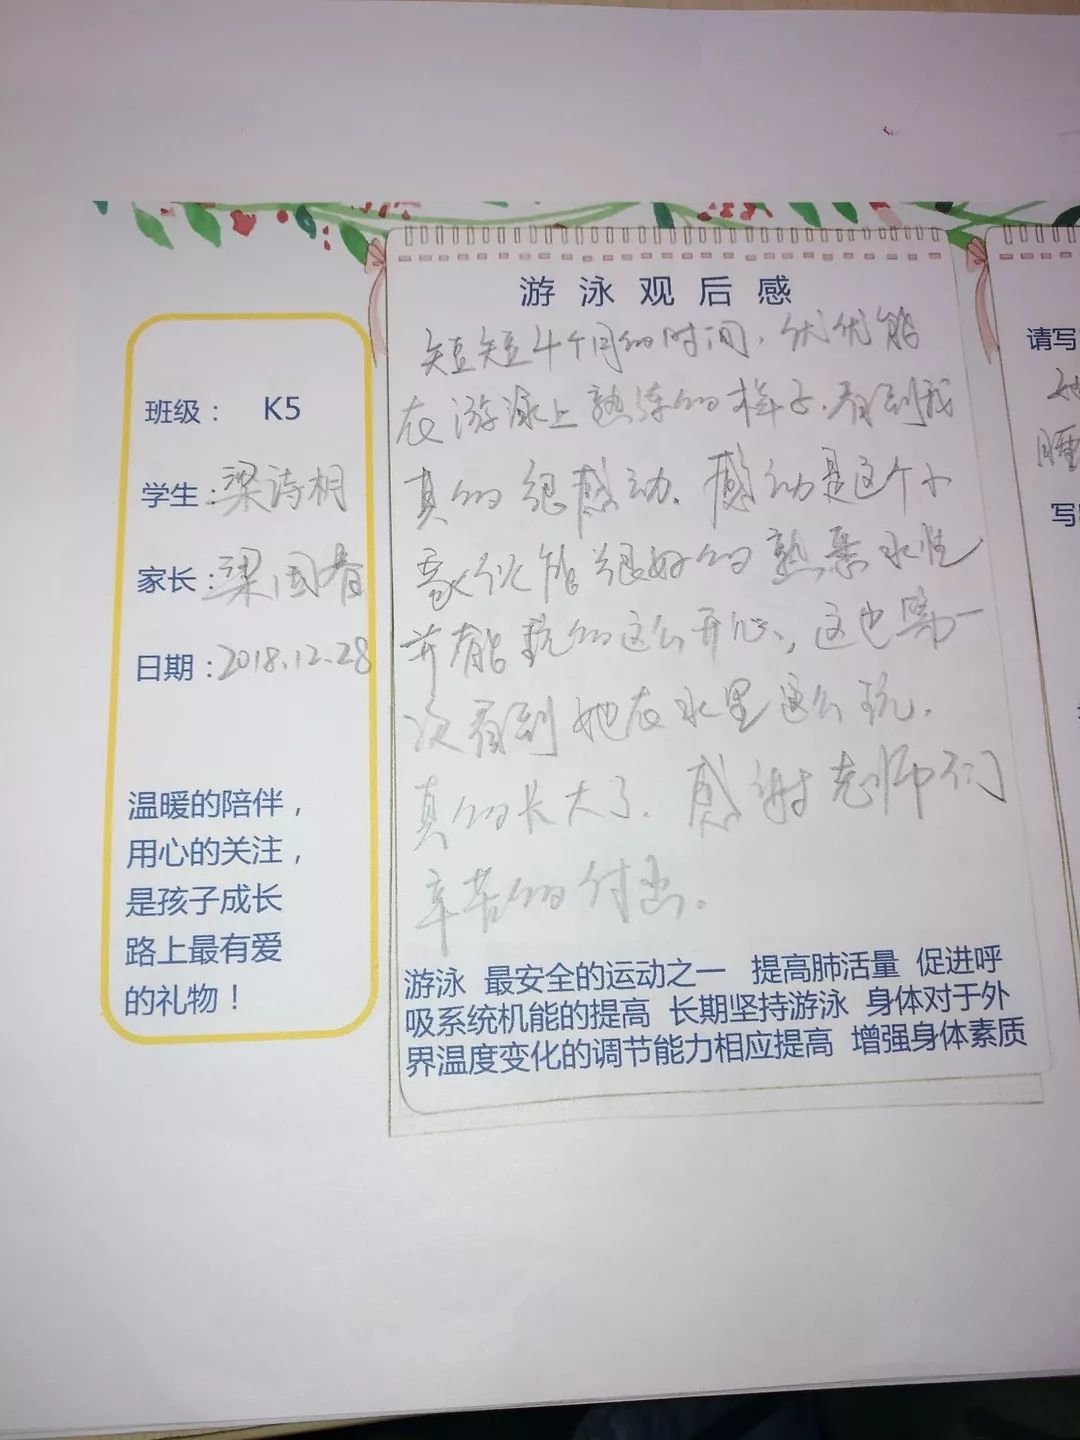 班级： K5
学生：梁诗桐
家长：梁国春
日期：2018.12.28
温暖的陪伴，
用心的关注，
是孩子成长
路上最有爱
的礼物！
游泳观后感
短短4个月的时间，优优能
在游泳上熟练的样子，看到我
真的很感动。感动是这个小
家伙能很好的熟悉水性
并能玩的这么开心，这也第一
次看到她在水里这么玩。
真的长大了。感谢老师们
辛苦的付出。
游泳 最安全的运动之一 提高肺活量 促进呼
吸系统机能的提高 长期坚持游泳 身体对于外
界温度变化的调节能力相应提高 增强身体素质
请写
她
腫
写